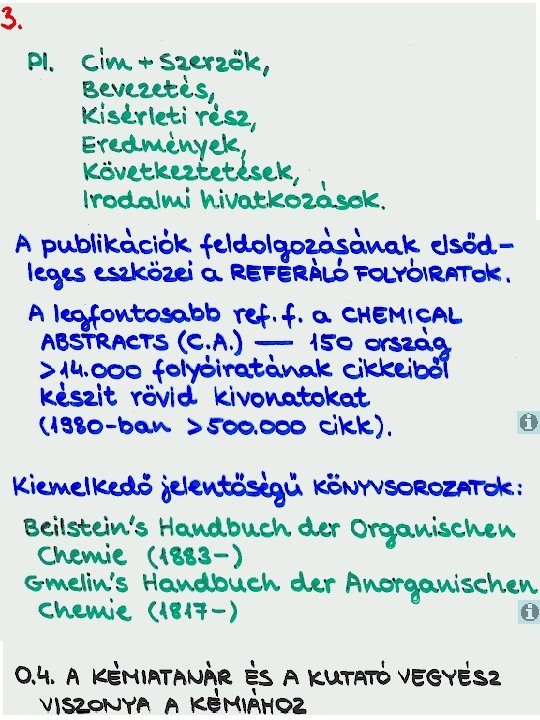 3.
Pl. Cím + Szerzők,
Bevezetés,
Kísérleti rész,
Eredmények,
Következtetések,
Irodalmi hivatkozások.
A publikációk feldolgozásának elsőd-
leges eszközei a REFERÁLÓ FOLYÓIRATOK.
A legfontosabb ref. f. a CHEMICAL
ABSTRACTS (C.A.) — 150 ország
>14.000 folyóiratának cikkeiből
készit rövid kivonatokat
(1980-ban >500.000 cikk).
Kiemelkedő jelentőségű KÖNYVSOROZATOK:
Beilstein's Handbuch der Organischen
Chemie (1883-)
Gmelin's Handbuch der Anorganischen
Chemie (1817-)
0.4. A KÉMIATANÁR ÉS A KUTATÓ VEGYÉSZ
VISZONYA A KÉMIÁHOZ